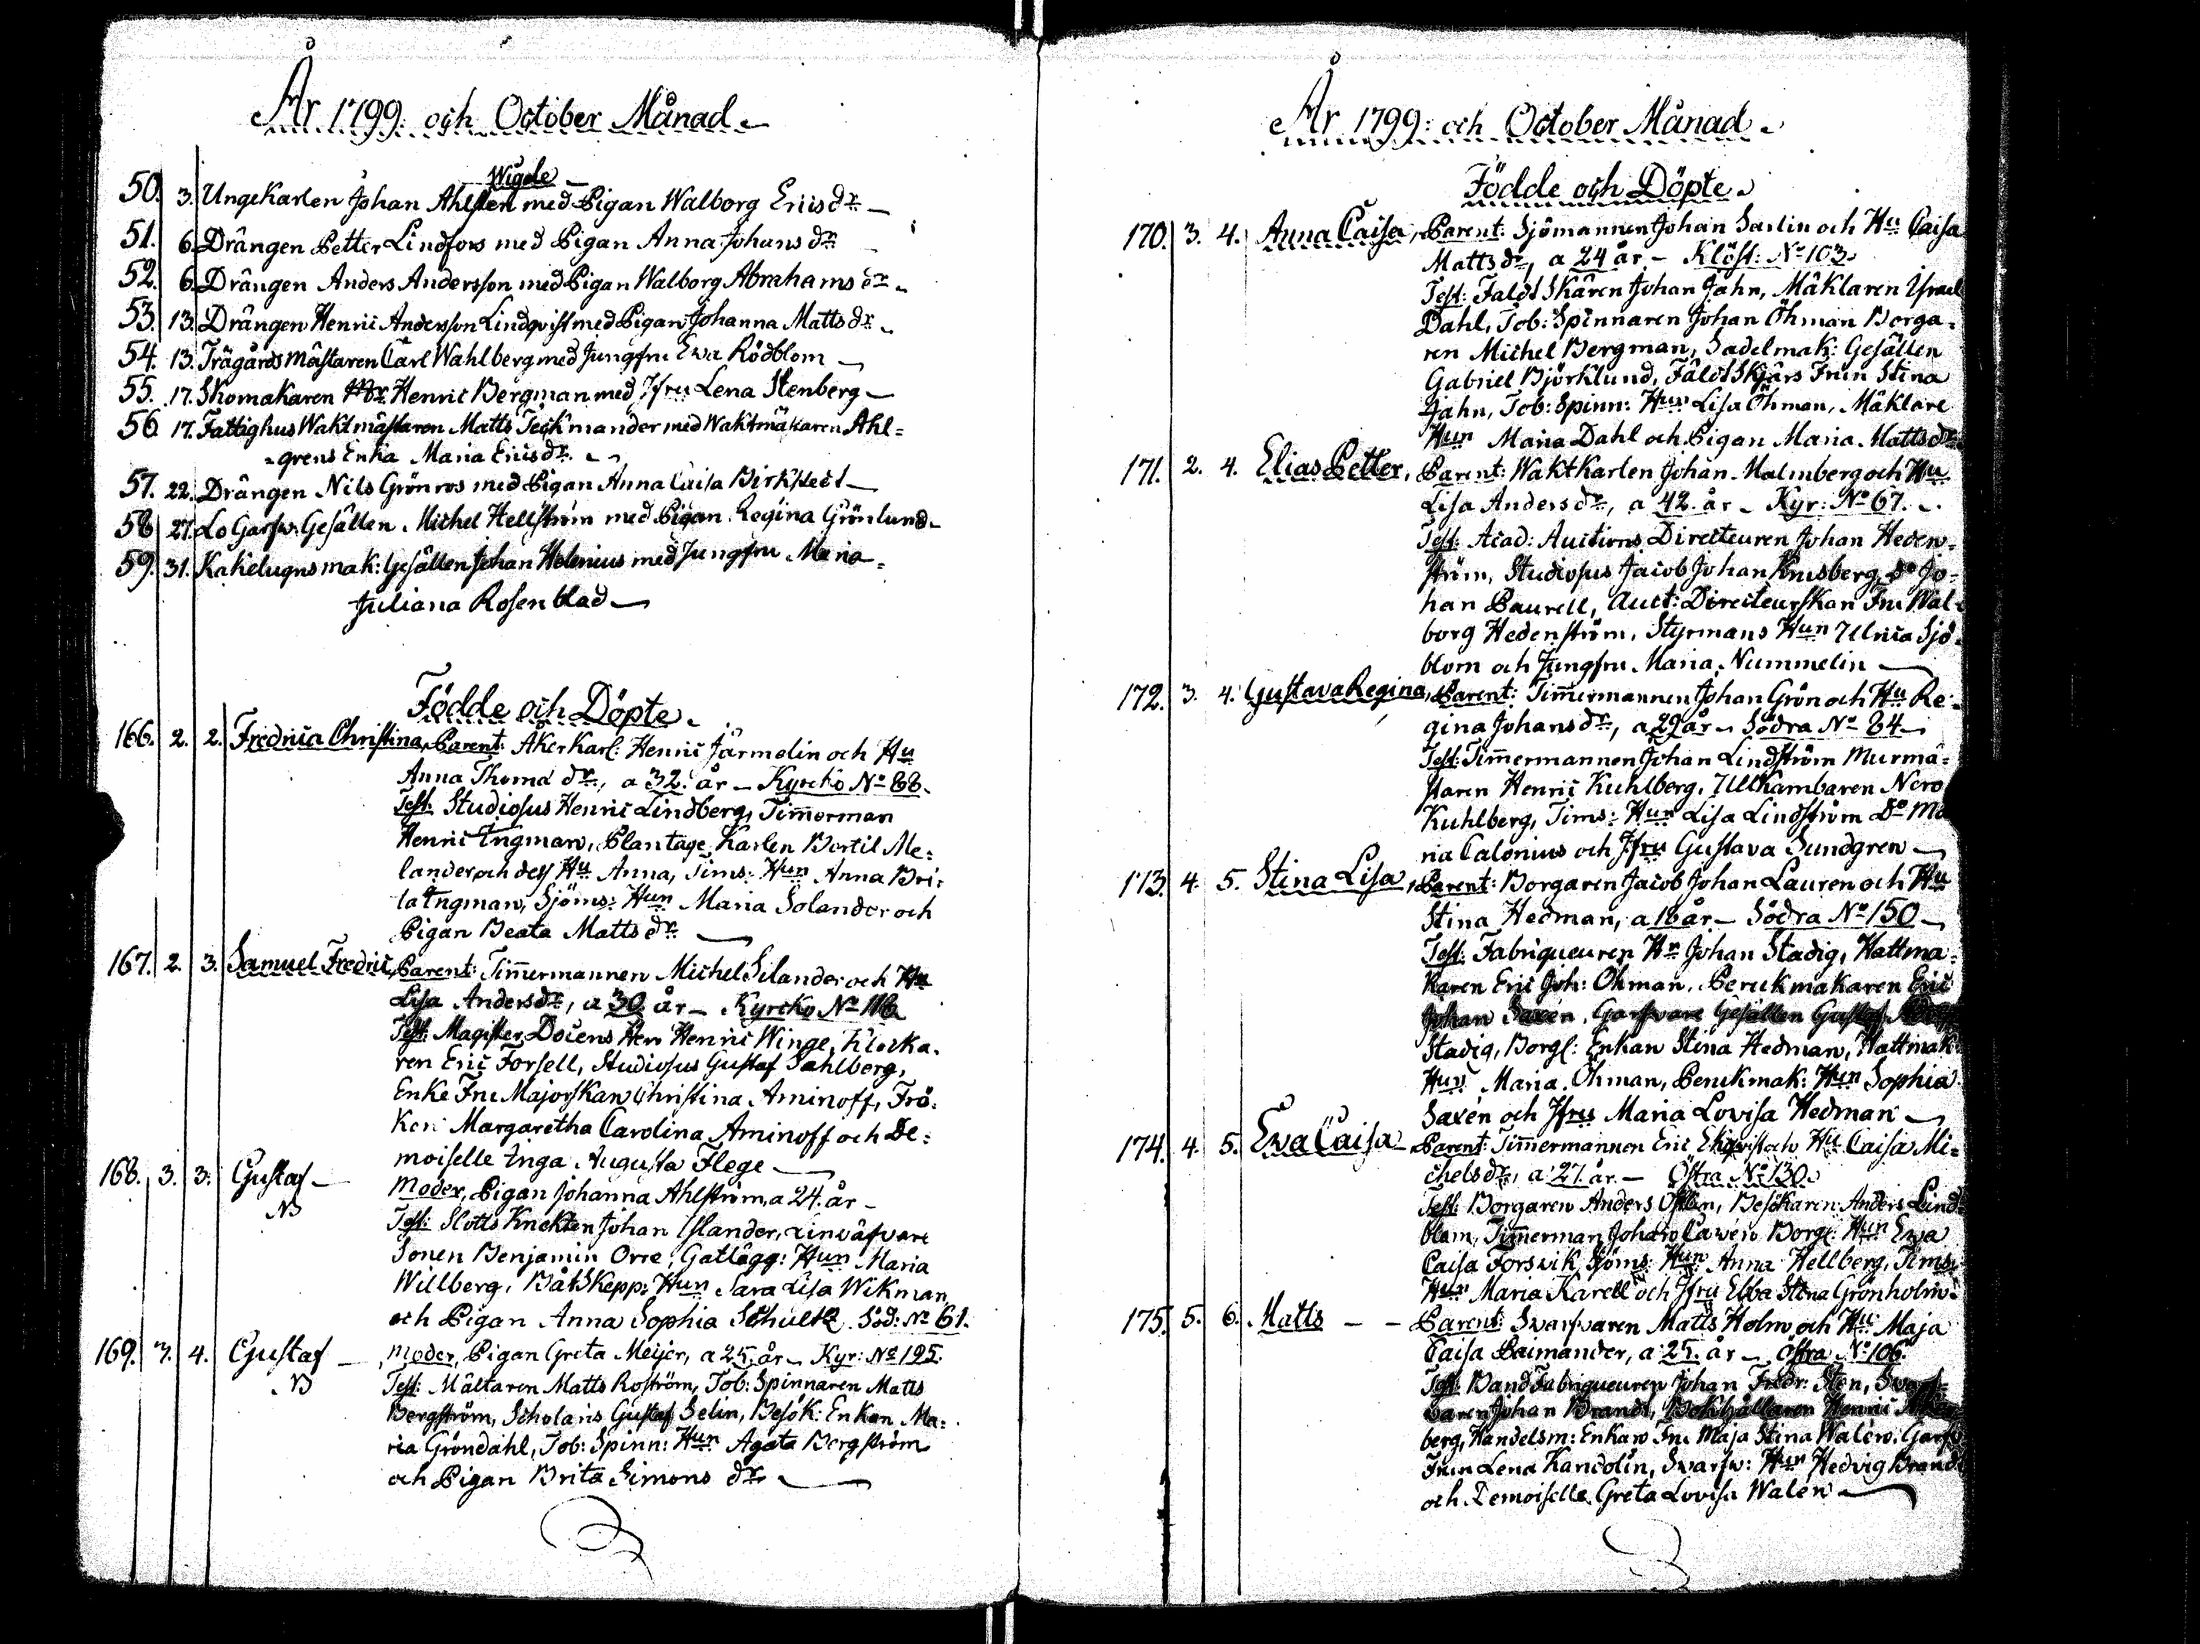 År 1799: och October Månad.
Wigde
50. 3. Ungekarlen Johan Ahlsten med Pigan Walborg Ericsdr
51. 6. Drängen Petter Lindfors med Pigan Anna Johansdr
52. 6. Drängen Anders Andersson med Pigan Walborg Abrahamsdr
53. 13. Drängen Henric Andersson Lindqvist med Pigan Johanna Mattsdr
54. 13. Trägårds mästaren Carl Wahlberg med Jungfru Ewa Rödblom
55. 17. Skomakaren Mr Henric Bergman med Jfru Lena Stenberg
56. 17. Fattighus Waktmästaren Matts Teckmander med Waktmäkaren Ahl=
grens Enka Maria Ericsdr
57. 22. Drängen Nils Grönros med Pigan Anna Caisa Birkstedt
58. 27. Lo Garfw. Gesällen Michel Hellström med Pigan Regina Grönlund
59. 31. Kakelugnsmak: Gesällen Johan Helenius med Jungfru Maria
Juliana Rosenblad
Födde och Döpte.
166. 2. 2. Fredrica Christina, Parent: Åkerkarl: Henric Järmelin och Hu
Anna Thomædr, a 32. år – Kyrcko No 88.
Test: Studiosus Henric Lindberg, Timmerman
Henric Ingman, Plantage Karlen Bertil Me=
lander och dess Hu Anna, Tims: Hun Anna Bri=
ta Ingman, Sjöms: Hun Maria Solander och
Pigan Beata Mattsdr
167. 2. 3. Samuel Fredric, Parent: Timmermannen Michel Silander och Hu
Lisa Andersdr, a 30 år – Kyrcko No 116
Test: Magister Docens Herr Henric Winge, Klocka=
ren Eric Forsell, Studiosus Gustaf Sahlberg,
Enke Fru Majorskan Christina Aminoff, Frö=
ken Margaretha Carolina Aminoff och De=
moiselle Inga Augusta Flege
168. 3. 3. Gustaf – Moder, Pigan Johanna Ahlström, a 24. år –
NB
Test: Slotts Knekten Johan Islander, Linväfvare
Sonen Benjamin Orre, Gatlägg: Hun Maria
Willberg, Båtskepp: Hun Sara Lisa Wikman
och Pigan Anna Sophia Schultz. Söd: No 61.
169. 3. 4. Gustaf – Moder, Pigan Greta Meijer, a 25. år – Kyr: No 195.
NB
Test: Mältaren Matts Roström, Tob: Spinnaren Matts
Bergström, Scholaris Gustaf Selin, Besök: Enkan Ma=
ria Gröndahl, Tob: Spinn: Hun Agata Bergström
och Pigan Brita Simonsdr
År 1799: och October Månad.
Födde och Döpte.
170. 3. 4. Anna Caisa, Parent: Sjömannen Johan Sarlin och Hu Caisa
Mattsdr, a 24 år – Klöst: No 103.
Test: Faldtskären Johan Jahn, Mäklaren Israel
Dahl, Tob: Spinnaren Johan Öhman Borga=
ren Michel Bergman, Sadelmak: Gesällen
Gabriel Björklund, Fäldtskjärs Frun Stina
Jahn, Tob: Spinn: Hun Lisa Öhman, Mäklare
Hun Maria Dahl och Pigan Maria Mattsdr
171. 2. 4. Elias Petter, Parent: Waktkarlen Johan Malmberg och Hu
Lisa Andersdr, a 42. år – Kyr: No 67.
Test: Acad: Auctions Directeuren Johan Heden=
ström, Studiosus Jacob Johan Knusberg, Do Jo=
han Paurell, Auct: Directeurskan Fru Wal=
borg Hedenström, Styrmans Hun Ulrica Sjö=
blom och Jungfru Maria Nummelin
172. 3. 4. Gustava Regina, Parent: Timmermannen Johan Grön och Hu Re=
gina Johansdr, a 29 år – Södra No 84
Test: Timmermannen Johan Lindström Murmä=
staren Henric Kuhlberg, Ullkambaren Nero
Kuhlberg, Tims: Hun Lisa Lindström Do Ma
ria Calonius och Jfru Gustava Sundgren
173. 4. 5. Stina Lisa, Parent: Borgaren Jacob Johan Lauren och Hu
Stina Hedman, a 18 år – Södra No 150
Test: Fabriqueuren Hr Johan Stadig, Hattma=
karen Eric Joh: Öhman, Peruckmakaren Eric
Johan Saxén, Garfvare Gesällen Gustaf
Stadig, Borgl: Enkan Stina Hedman, Hattmak
Hun Maria Öhman, Peruckmak: Hun Sophia
Saxén och Jfru Maria Lovisa Hedman
174. 4. 5. Ewa Caisa – Parent: Timmermannen Eric Ekqvist och Hu Caisa Mi=
chelsdr, a 27. år – Östra No 130.
Test: Borgaren Anders Östlin, Besökaren Anders Lind=
blom, Timmerman Johan Cawén Borgl: Hun Ewa
Caisa Forsvik, Sjöms: Hun Anna Hellberg, Tims:
Hun Maria Karell och Jfru Ebba Stina Grönholm
175. 5. 6. Matts – – Parent: Swarfvaren Matts Holm och Hu Maja
Caisa Paimander, a 25. år – Östra No 106.
Test: Band Fabriqueuren Johan Fredr: Sten, Swarf=
varen Johan Brandt, Bokhållaren Henric
berg, Handelsm: Enkan Fru Maja Stina Walén, Garfv
Frun Lena Kandolin, Swarfw: Hun Hedvig Brandt
och Demoiselle Greta Lovisa Walén